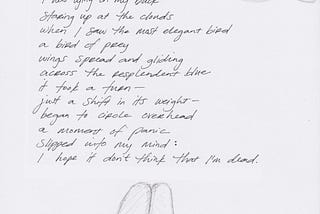 I was lying on my back
staring up at the clouds
when I saw the most elegant bird
a bird of prey
wings spread and gliding
across the resplendent blue
it took a turn—
just a shift in its weight—
began to circle overhead
a moment of panic
slipped into my mind:
I hope it don't think that I'm dead.